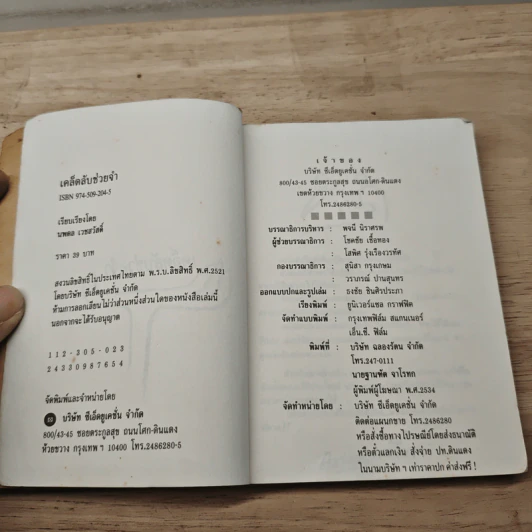 เคล็ดลับช่วยจำ
ISBN 974-509-204-5
เรียบเรียงโดย
นพดล เวชสวัสดิ์
ราคา 39 บาท
สงวนลิขสิทธิ์ในประเทศไทยตาม พ.ร.บ.ลิขสิทธิ์ พ.ศ.2521
โดยบริษัท ซีเอ็ดยูเคชั่น จำกัด
ห้ามการลอกเลียนไม่ว่าส่วนหนึ่งส่วนใดของหนังสือเล่มนี้
นอกจากจะได้รับอนุญาต
112-305-023
24330987654
จัดพิมพ์และจำหน่ายโดย
บริษัท ซีเอ็ดยูเคชั่น จำกัด
800/43-45 ซอยตระกูลสุข ถนนอโศก-ดินแดง
ห้วยขวาง กรุงเทพฯ 10400 โทร.2486280-5
เจ้าของ
บริษัท ซีเอ็ดยูเคชั่น จำกัด
800/43-45 ซอยตระกูลสุข ถนนอโศก-ดินแดง
เขตห้วยขวาง กรุงเทพฯ 10400
โทร.2486280-5
บรรณาธิการบริหาร : พจนี นิราศรพ
ผู้ช่วยบรรณาธิการ : โชคชัย เชื้อทอง
: โสพิศ รุ่งเรืองวรทัศ
กองบรรณาธิการ : สุนิสา กรุงเกษม
: วราภรณ์ ปานสุนทร
ออกแบบปกและรูปเล่ม : ธงชัย ชินศิรประภา
เรียงพิมพ์ : ยูนิเวอร์แซล กราฟฟิค
จัดทำแบบพิมพ์ : กรุงเทพฟิล์ม สแกนเนอร์
เอ็น.ซี. ฟิล์ม
พิมพ์ที่ : บริษัท ฉลองรัตน จำกัด
โทร.247-0111
นายฐานทัต จาโรทก
ผู้พิมพ์ผู้โฆษณา พ.ศ.2534
จัดจำหน่ายโดย : บริษัท ซีเอ็ดยูเคชั่น จำกัด
ติดต่อแผนกขาย โทร.2486280
หรือสั่งซื้อทางไปรษณีย์โดยส่งธนาณัติ
หรือตั๋วแลกเงิน สั่งจ่าย ปท.ดินแดง
ในนามบริษัท ฯ เท่าราคาปก ค่าส่งฟรี !